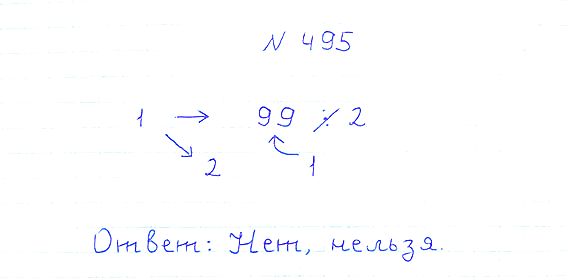 N 495
1 → 99 ⋮̸ 2
2 1
Ответ: Нет, нельзя.